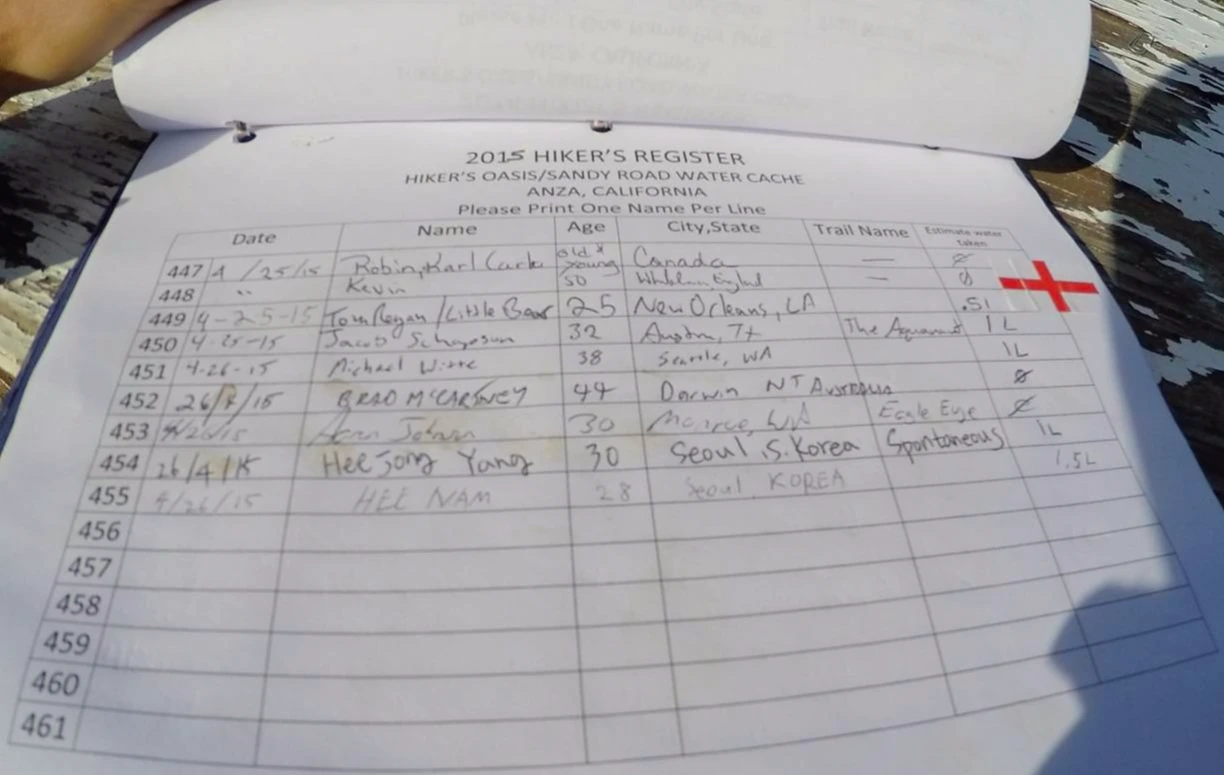 2015 HIKER'S REGISTER
HIKER'S OASIS/SANDY ROAD WATER CACHE
ANZA, CALIFORNIA
Please Print One Name Per Line
Date Name Age City,State Trail Name Estimate water taken
447 4/25/15 Robin, Karl Clark old & young Canada — ∅
448 " Kevin 50 England — ∅
449 4-25-15 Tom Regan / Little Bear 25 New Orleans, LA .5L
450 4-25-15 Jacob 32 Austin, TX The Aquanaut 1L
451 4-26-15 Michael Witte 38 Seattle, WA 1L
452 26/4/15 BRAD McCARTNEY 44 Darwin NT Australia ∅
453 4/26/15 30 Monroe, WA Eagle Eye ∅
454 26/4/15 Hee Jong Yang 30 Seoul, S. Korea Spontaneous 1L
455 4/26/15 HEE NAM 28 Seoul KOREA 1.5L
456
457
458
459
460
461